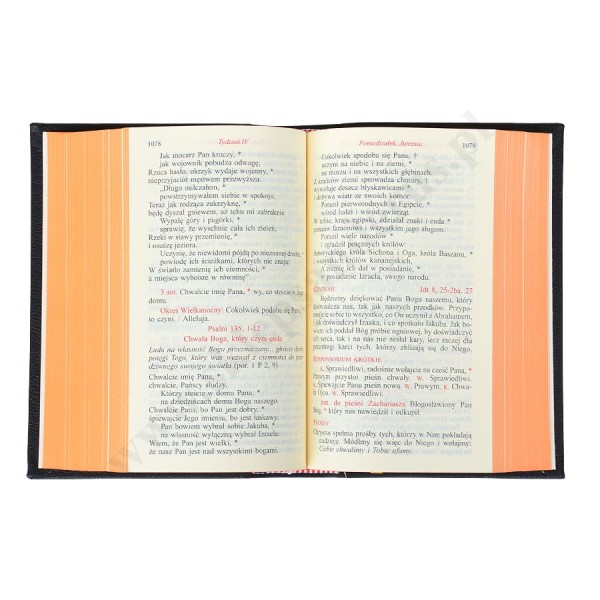 1078 Tydzień IV
Jak mocarz Pan kroczy, *
jak wojownik pobudza odwagę;
Rzuca hasło, okrzyk wydaje wojenny, *
nieprzyjaciół męstwem przewyższa.
„Długo milczałem, *
powstrzymywałem siebie w spokoju,
Teraz jak rodząca zakrzyknę, *
będę dyszał gniewem, aż tchu mi zabraknie.
Wypalę góry i pagórki, *
sprawię, że wyschnie cała ich zieleń,
Rzeki w stawy przemienię, *
i osuszę jeziora.
Uczynię, że niewidomi pójdą po nieznanej drodze, *
powiodę ich ścieżkami, których nie znają;
W światło zamienię ich ciemności, *
a miejsca wyboiste w równinę”.
3 ant. Chwalcie imię Pana, * wy, co stoicie w
domu.
Okres Wielkanocny: Cokolwiek podoba się Panu, *
to czyni. Alleluja.
Psalm 135, 1-12
Chwała Boga, który czyni cuda
Ludu na własność Bogu przeznaczony, głosicie dzieła
potęgi Tego, który was wezwał z ciemności do prze-
dziwnego swojego światła (por. 1 P 2, 9)
Chwalcie imię Pana, *
chwalcie, Pańscy słudzy,
Którzy stoicie w domu Pana, *
na dziedzińcach domu Boga naszego.
Chwalcie Pana, bo Pan jest dobry, *
śpiewajcie Jego imieniu, bo jest łaskawy.
Pan bowiem wybrał sobie Jakuba, *
na własność wyłączną wybrał Izraela.
Wiem, że Pan jest wielki, *
że nasz Pan jest nad wszystkimi bogami.
Poniedziałek, Jutrznia 1079
Cokolwiek spodoba się Panu, *
uczyni na niebie i na ziemi, *
na morzu i na wszystkich głębinach.
Z krańców ziemi sprowadza chmury, *
wywołuje deszcz błyskawicami *
i dobywa wiatr ze swoich komór.
Poraził pierworodnych w Egipcie, *
wśród ludzi i wśród zwierząt.
W tobie, kraju egipski, zdziałał znaki i cuda *
przeciw faraonowi i wszystkim jego sługom.
Poraził wiele narodów *
i zgładził potężnych królów:
Amoryckiego króla Sichona i Oga, króla Baszanu, *
i wszystkich królów kananejskich,
A ziemię ich dał w posiadanie, *
w posiadanie Izraela, swego narodu.
CZYTANIE Jdt 8, 25-26a. 27
Będziemy dziękować Panu Bogu naszemu, który
doświadcza nas, tak jak naszych przodków. Przypo-
mnijcie sobie to wszystko, co On uczynił z Abrahamem,
jak doświadczył Izaaka, i co spotkało Jakuba. Jak bo-
wiem ich poddał Bóg próbie ogniowej, by doświadczyć
ich serca, tak i na nas nie zesłał kary, lecz raczej dla
przestrogi karci tych, którzy zbliżają się do Niego.
RESPONSORIUM KRÓTKIE
K. Sprawiedliwi, radośnie wołajcie na cześć Pana, *
Prawym przystoi pieśń chwały. W. Sprawiedliwi.
K. Śpiewajcie Panu pieśń nową. W. Prawym. K. Chwa-
ła Ojcu. W. Sprawiedliwi.
Ant. do pieśni Zachariasza: Błogosławiony Pan
Bóg, * który nas nawiedził i odkupił.
PROŚBY
Chrystus spełnia prośby tych, którzy w Nim pokładają
nadzieję. Módlmy się więc do Niego i wołajmy:
Ciebie chwalimy i Tobie ufamy.